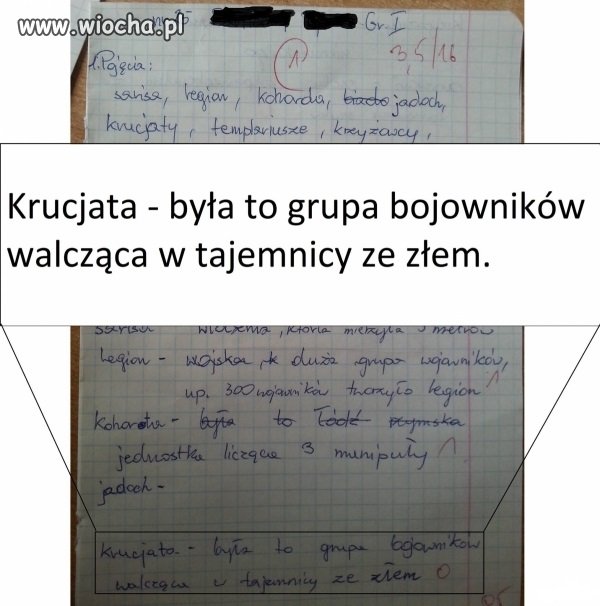 www.wiocha.pl
Gr. I
1
3,5/16
1. Pojęcia:
sarisa, legion, kohorda, biado jadoch,
krucjaty, templariusze, krzyżowcy,
Krucjata - była to grupa bojowników
walcząca w tajemnicy ze złem.
sarisa włócznia, która mierzyła metrów
Legion - wojska, k duża grupa wojowników,
np. 300 wojowników tworzyło legion 1
Kohorta - była to łódź rzymska
jednostka licząca 3 manipuły 1
jadoch -
Krucjata - była to grupa bojowników
walcząca w tajemnicy ze złem 0